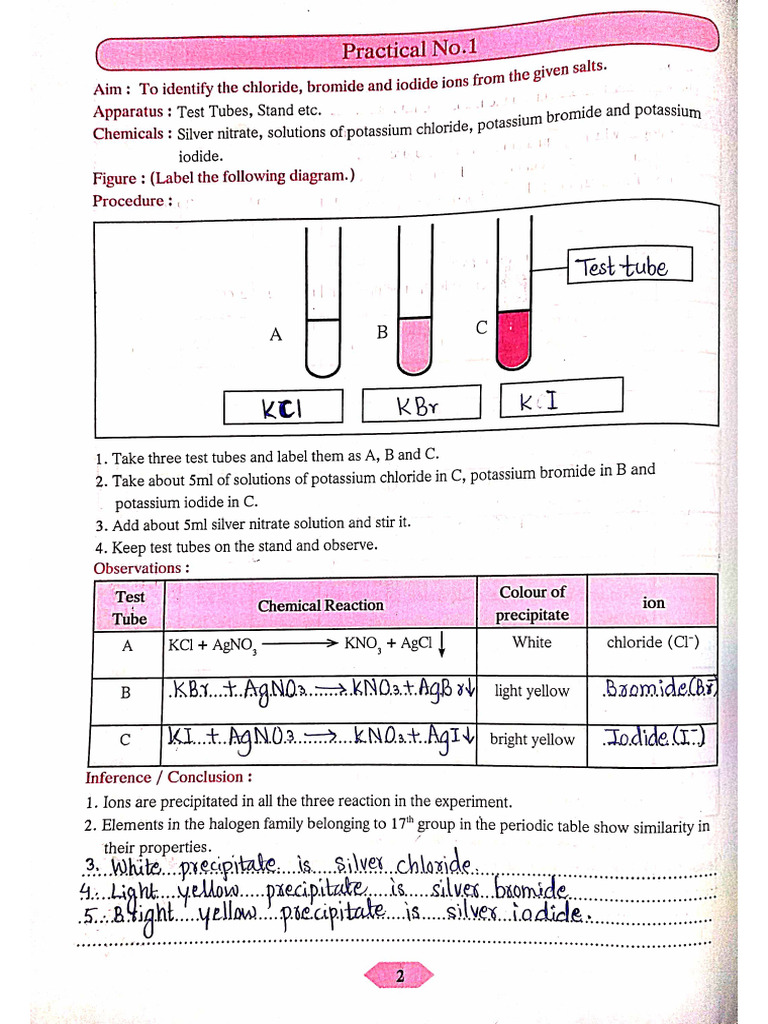 Practical No.1
Aim : To identify the chloride, bromide and iodide ions from the given salts.
Apparatus : Test Tubes, Stand etc.
Chemicals : Silver nitrate, solutions of potassium chloride, potassium bromide and potassium
iodide.
Figure : (Label the following diagram.)
Procedure :
Test tube
A
B
C
KCl
KBr
KI
1. Take three test tubes and label them as A, B and C.
2. Take about 5ml of solutions of potassium chloride in C, potassium bromide in B and
potassium iodide in C.
3. Add about 5ml silver nitrate solution and stir it.
4. Keep test tubes on the stand and observe.
Observations :
Test Tube Chemical Reaction Colour of precipitate ion
A KCl + AgNO₃ ⟶ KNO₃ + AgCl ↓ White chloride (Cl⁻)
B KBr + AgNO₃ ⟶ KNO₃ + AgBr↓ light yellow Bromide (Br⁻)
C KI + AgNO₃ ⟶ KNO₃ + AgI↓ bright yellow Iodide (I⁻)
Inference / Conclusion :
1. Ions are precipitated in all the three reaction in the experiment.
2. Elements in the halogen family belonging to 17th group in the periodic table show similarity in
their properties.
3. White precipitate is silver chloride.
4. Light yellow precipitate is silver bromide
5. Bright yellow precipitate is silver iodide.
2